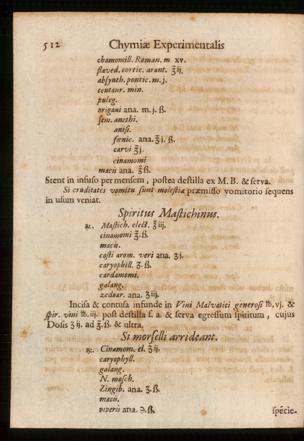 512 Chymiæ Experimentalis
chamomill. Roman. m xv.
flaved. cortic. arant. ℥ij.
absynth. pontic. m. j.
centaur. min.
puleg.
origani ana. m. j. ß.
sem. anethi.
anisi.
fœnic. ana. ʒj. ß.
carvi ℥j.
cinamomi
macis ana. ℥ß.
Stent in infuso per mensem, postea destilla ex M. B. & serva.
Si cruditates vomitu sunt molestiæ præmisso vomitorio sequens
in usum veniat.
Spiritus Mastichinus.
℞. Mastich. elect. ℥iij.
cinamomi ℥. ß.
macis.
costi arom. veri ana. ʒj.
caryophill. ʒ. ß.
cardamomi.
galang.
zedoar. ana. ʒij.
Incisa & contusa infunde in Vini Malvatici generosi ℔. vj. &
spir. vini ℔. iij. post destilla s. a. & serva egressum spiritum, cujus
Dosis ʒij. ad ℥. ß. & ultra.
Si morselli arrideant.
℞. Cinamom. el. ʒij.
caryophyll.
galang.
N. mosch.
Zingib. ana. ʒ. ß.
macis.
piperis ana. ℈. ß.
specie-